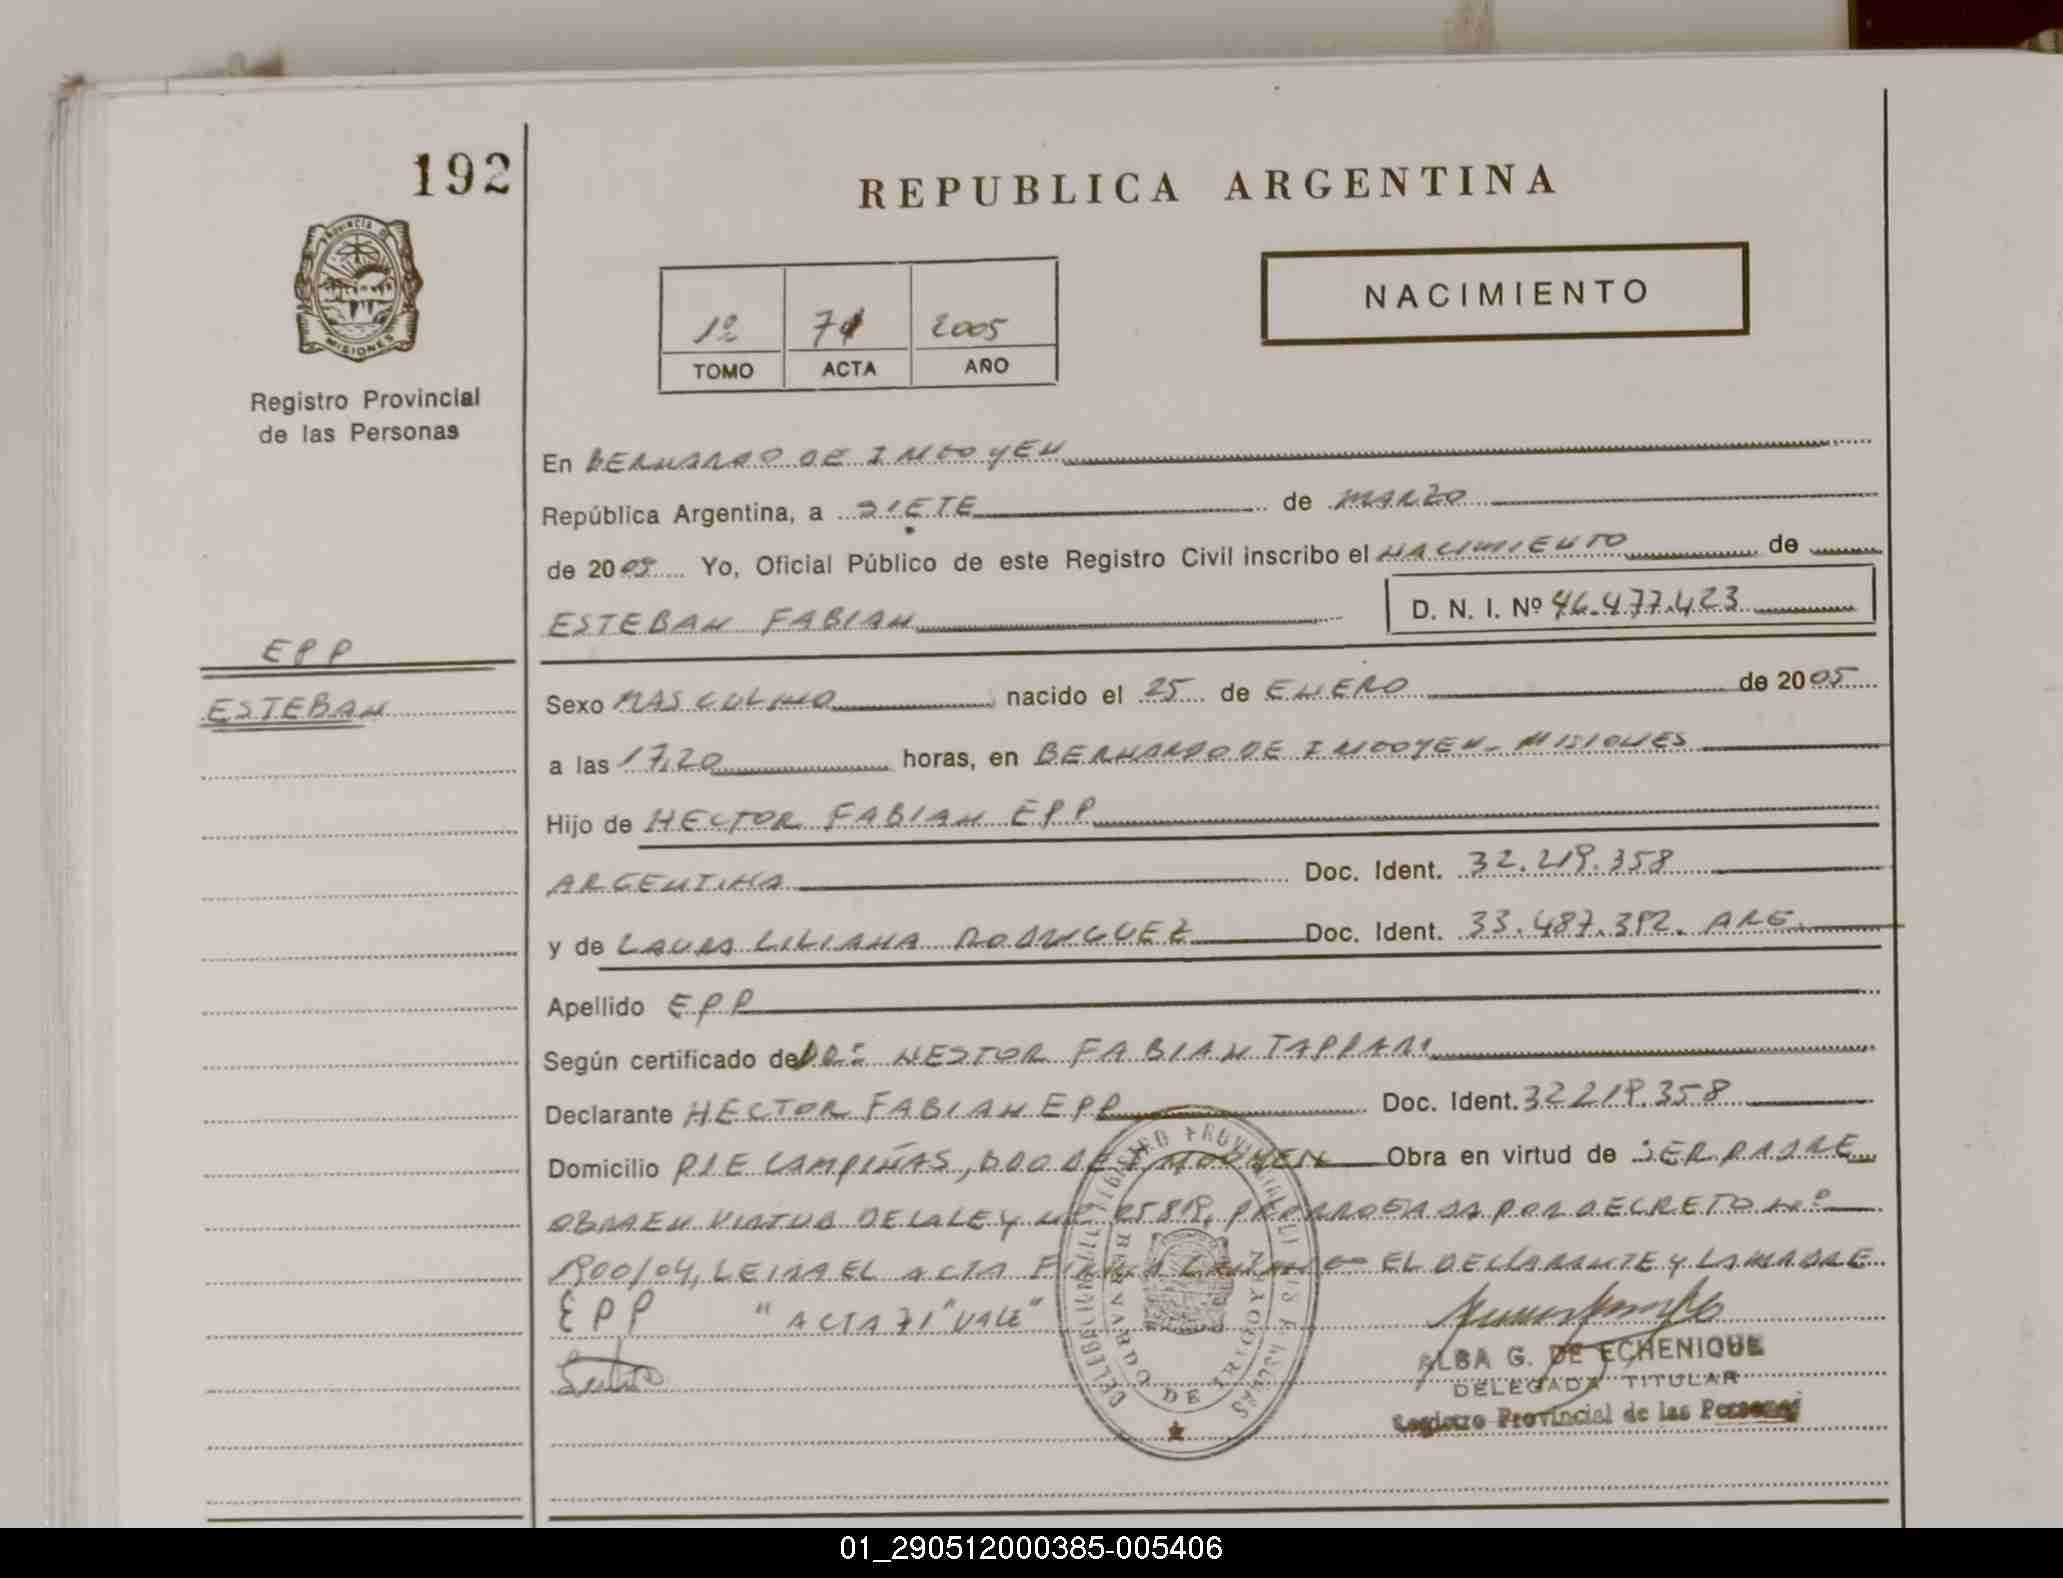 192
REPUBLICA ARGENTINA
PROVINCIA DE
MISIONES
Registro Provincial
de las Personas
NACIMIENTO
1º 71 2005
TOMO ACTA AÑO
En BERNARDO DE IRIGOYEN
República Argentina, a SIETE de MARZO
de 2005 Yo, Oficial Público de este Registro Civil inscribo el NACIMIENTO de
ESTEBAN FABIAN D. N. I. Nº 46.477.423
EPP
ESTEBAN
Sexo MASCULINO nacido el 25 de ENERO de 2005
a las 17,20 horas, en BERNARDO DE IRIGOYEN - MISIONES
Hijo de HECTOR FABIAN EPP
ARGENTINA Doc. Ident. 32.219.358
y de LAURA LILIANA RODRIGUEZ Doc. Ident. 33.487.392. ARG.
Apellido EPP
Según certificado de DR: NESTOR FABIAN TAPPARI
Declarante HECTOR FABIAN EPP Doc. Ident. 32219.358
Domicilio PJE CAMPIÑAS, BDO DE IRIGOYEN Obra en virtud de SER PADRE
OBRA EN VIRTUD DE LA LEY Nº 25819, PRORROGADA POR DECRETO Nº
1900/04, LEIDA EL ACTA FIRMAN EL DECLARANTE Y LA MADRE
EPP "ACTA 71" VALE"
ALBA G. DE ECHENIQUE
DELEGADA TITULAR
Registro Provincial de las Personas
BERNARDO DE IRIGOYEN
01_290512000385-005406